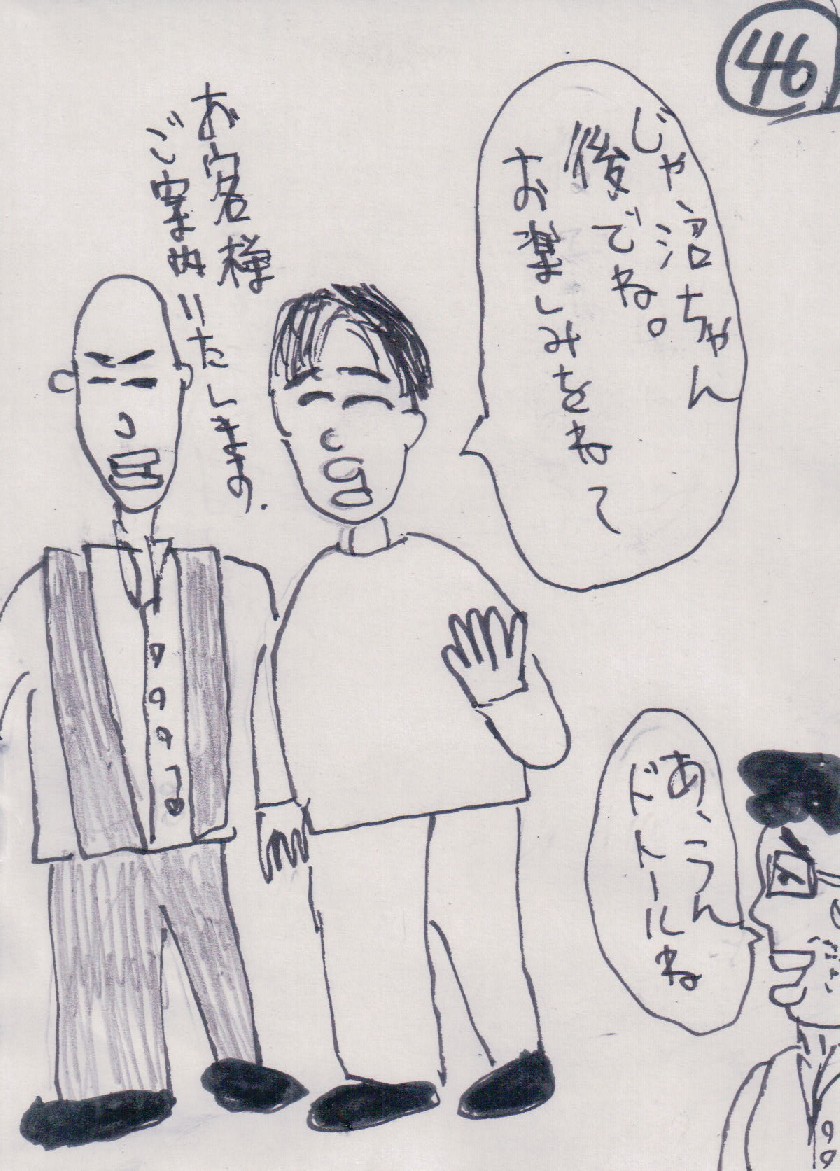 46
じゃ、沼ちゃん
後でね。
お楽しみをねて
お客様
ご案内いたします.
あ、うん
ドトールね